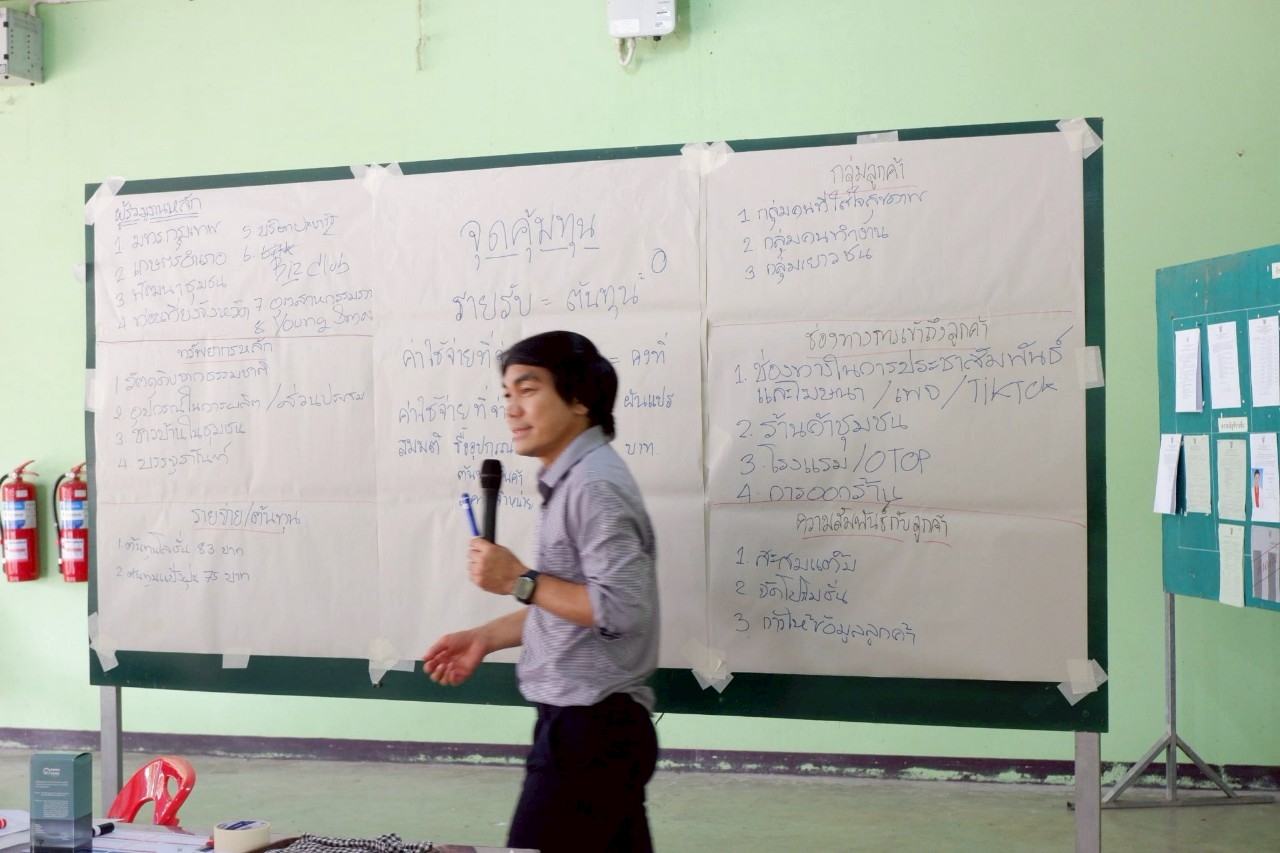 ผู้ร่วมงานหลัก
1 มทร กรุงเทพ
5 บริษัทประชารัฐ
2 เกษตรอำเภอ
6. Biz Club
3 พัฒนาชุมชน
4 ท่องเที่ยวจังหวัด
7 อุตสาหกรรม
8. Young Smart
ทรัพยากรหลัก
1 วัตถุดิบจากธรรมชาติ
2 อุปกรณ์ในการผลิต / ส่วนประสม
3. ชาวบ้านในชุมชน
4. บรรจุภัณฑ์
รายจ่าย/ต้นทุน
1 ต้นทุนโลชั่น 83 บาท
2 75 บาท
จุดคุ้มทุน
รายรับ = ต้นทุน = 0
ค่าใช้จ่ายที่ = คงที่
ค่าใช้จ่ายที่ ผันแปร
สมมติ ซื้ออุปกรณ์ บาท.
กลุ่มลูกค้า
1 กลุ่มคนที่ใส่ใจสุขภาพ
2 กลุ่มคนทำงาน
3 กลุ่มเยาวชน
ช่องทางการเข้าถึงลูกค้า
1. ช่องทางในการประชาสัมพันธ์
และโฆษณา / เพจ / TikTok
2. ร้านค้าชุมชน
3. โรงแรม/OTOP
4. การออกร้าน
ความสัมพันธ์กับลูกค้า
1. สะสมแต้ม
2. จัดโปรโมชั่น
3. การให้ข้อมูลลูกค้า